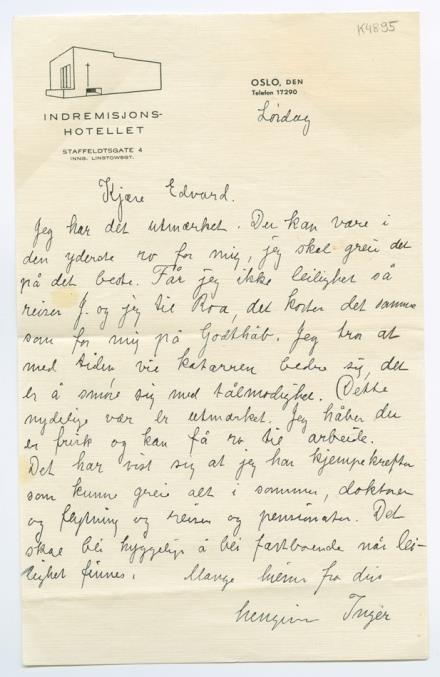 K4895
INDREMISJONS-
HOTELLET
STAFFELDTSGATE 4
INNG. LINSTOWSGT.
OSLO, DEN
Telefon 17290
Lördag
Kjære Edvard.
Jeg har det utmærket. Du kan være i
den yderste ro for mig, jeg skal greie det
på det beste. Får jeg ikke leilighet så
reiser J. og jeg til Roa, det koster det samme
som for mig på Godthåb. Jeg tror at
med tiden vil katarren bedre sig, det
er å smøre sig med tålmodighet. Dette
nydelige vær er utmærket. Jeg håber du
er frisk og kan få ro til arbeide.
Det har vist sig at jeg har kjempekrefter
som kunne greie alt i sommer, doktorer
og flytning og reiser og pensionater. Det
skal bli hyggelig å bli fastboende når lei-
lighet finnes. Mange hilsner fra din
hengivne Inger